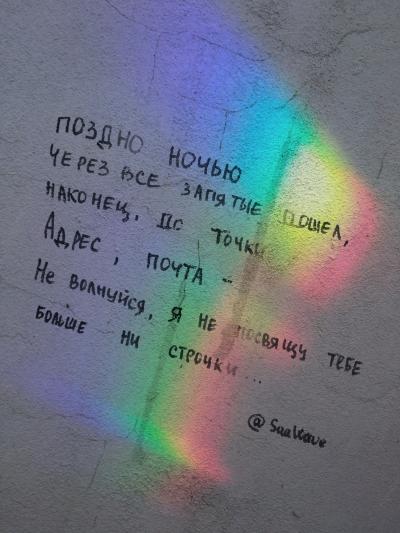 ПОЗДНО НОЧЬЮ
ЧЕРЕЗ ВСЕ ЗАПЯТЫЕ ДОШЕЛ,
НАКОНЕЦ, ДО ТОЧКИ
АДРЕС, ПОЧТА --
Не волнуйся, я не посвящу тебе
больше ни строчки...
@ Saawave